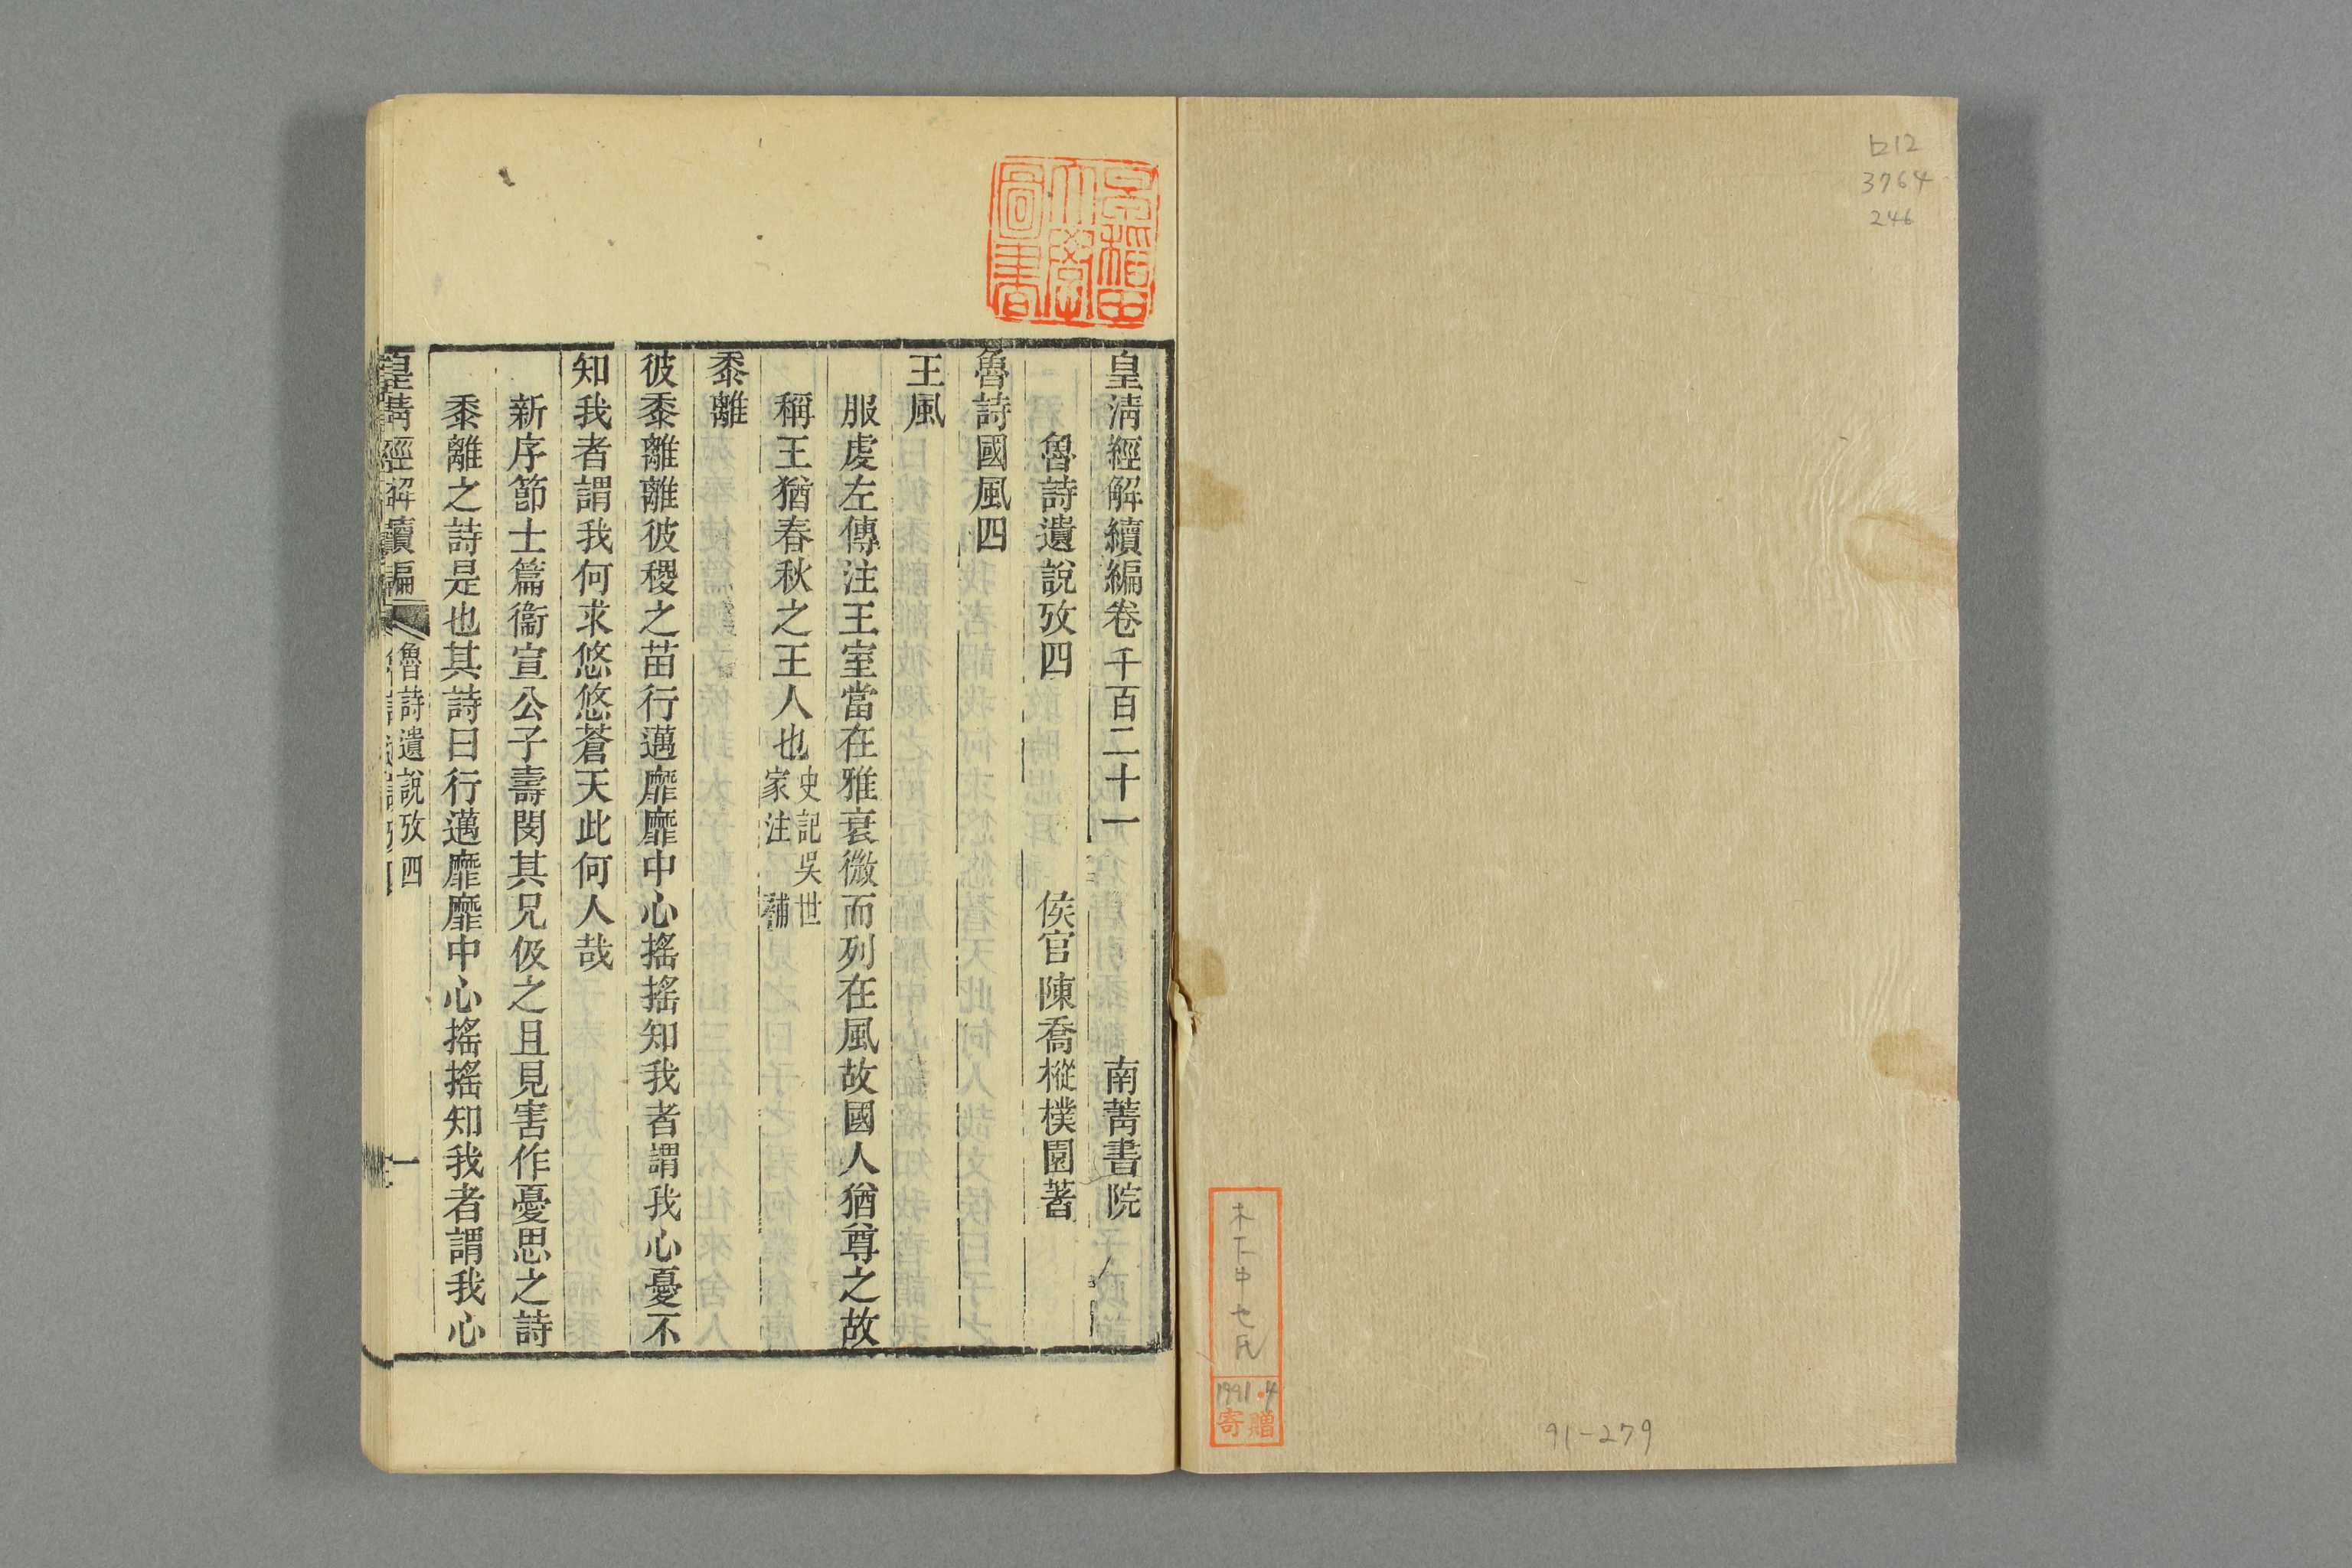 ロ12
3764
246
木下中七氏
1991.4
寄贈
91-279
早稲田大學圖書
皇清經解續編卷千百二十一 南菁書院
魯詩遺說攷四 侯官陳喬樅樸園著
魯詩國風四
王風
服虔左傳注王室當在雅衰微而列在風故國人猶尊之故
稱王猶春秋之王人也史記吳世
家注 補
黍離
彼黍離離彼稷之苗行邁靡靡中心搖搖知我者謂我心憂不
知我者謂我何求悠悠蒼天此何人哉
新序節士篇衞宣公子壽閔其兄伋之且見害作憂思之詩
黍離之詩是也其詩曰行邁靡靡中心搖搖知我者謂我心
皇淸經解續編 魯詩遺說攷四 一